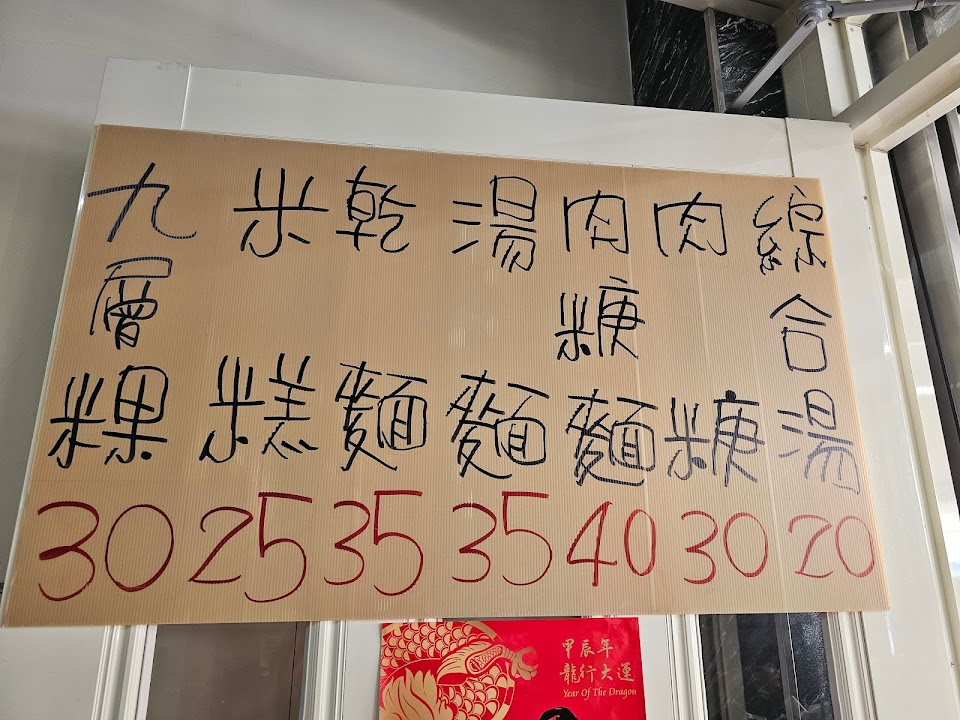 綜合湯 20
肉焿 30
肉焿麵 40
湯麵 35
乾麵 35
米糕 25
九層粿 30
甲辰年
龍行大運
Year Of The Dragon